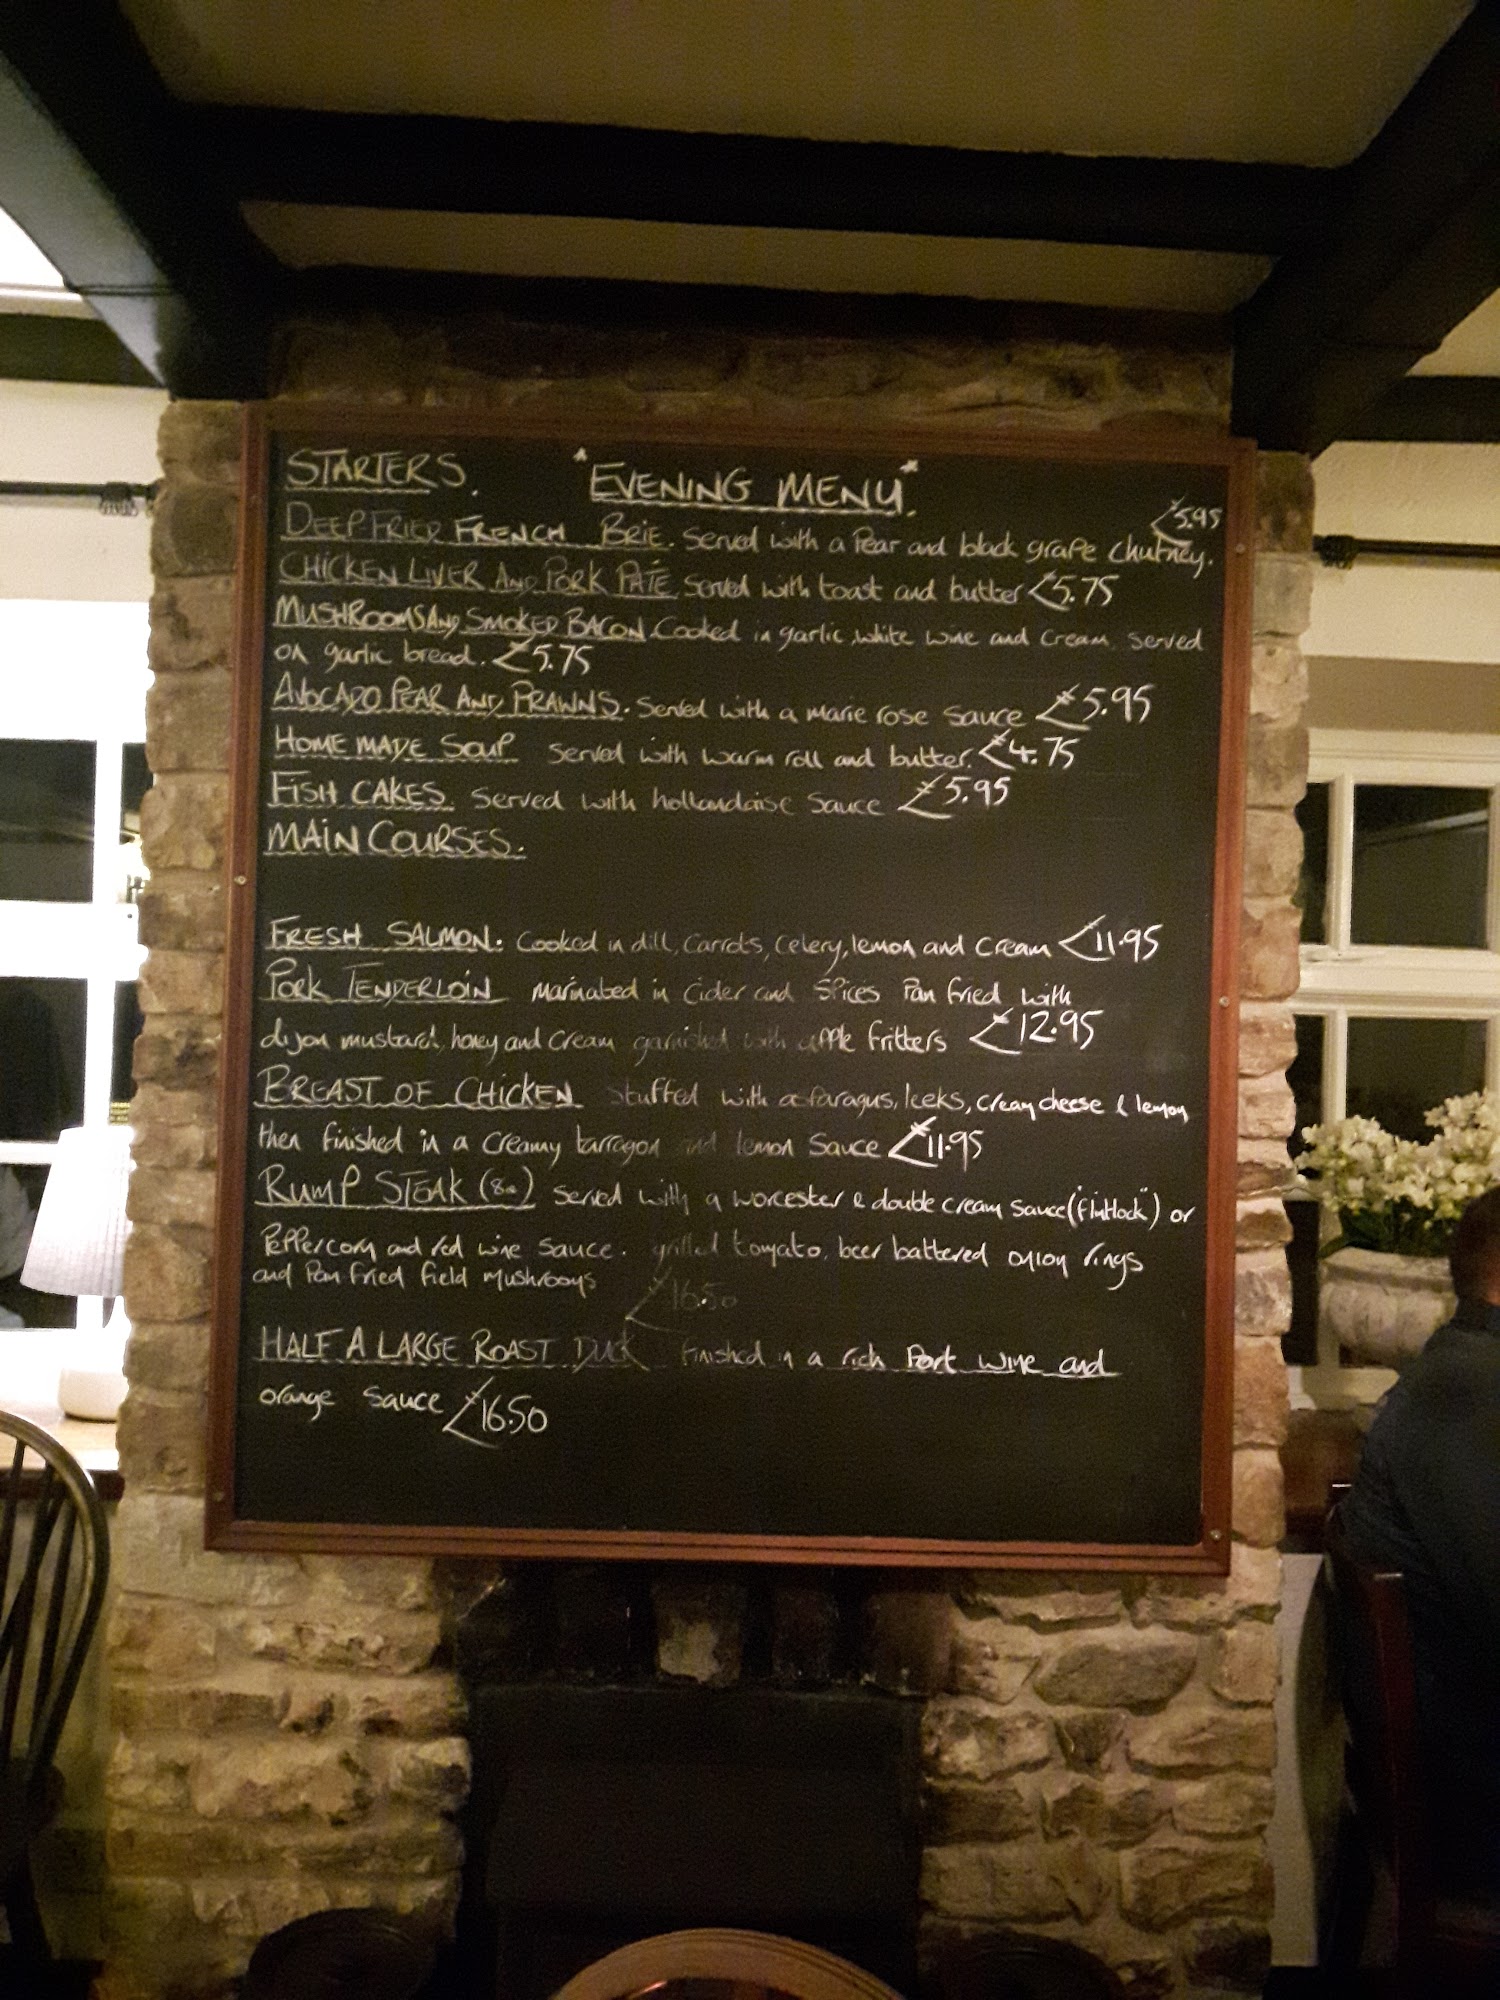 STARTERS. "EVENING MENU".
£5.95
DEEP FRIED FRENCH BRIE. Served with a Pear and black grape chutney.
CHICKEN LIVER AND PORK PATE served with toast and butter £5.75
MUSHROOMS AND SMOKED BACON Cooked in garlic, white wine and cream, served
on garlic bread. £5.75
AVOCADO PEAR AND PRAWNS. Served with a marie rose sauce £5.95
HOME MADE SOUP served with warm roll and butter. £4.75
FISH CAKES. Served with hollandaise sauce £5.95
MAIN COURSES.
FRESH SALMON. Cooked in dill, carrots, celery, lemon and cream £11.95
PORK TENDERLOIN marinated in cider and spices Pan fried with
dijon mustard, honey and cream garnished with apple fritters £12.95
BREAST OF CHICKEN stuffed with asparagus, leeks, cream cheese & lemon
then finished in a creamy tarragon and lemon sauce £11.95
RUMP STEAK (8oz) served with a worcester & double cream sauce ("flintlock") or
Peppercorn and red wine sauce. grilled tomato, beer battered onion rings
and Pan fried field mushrooms
£16.50
HALF A LARGE ROAST DUCK finished in a rich Port wine and
orange sauce £16.50